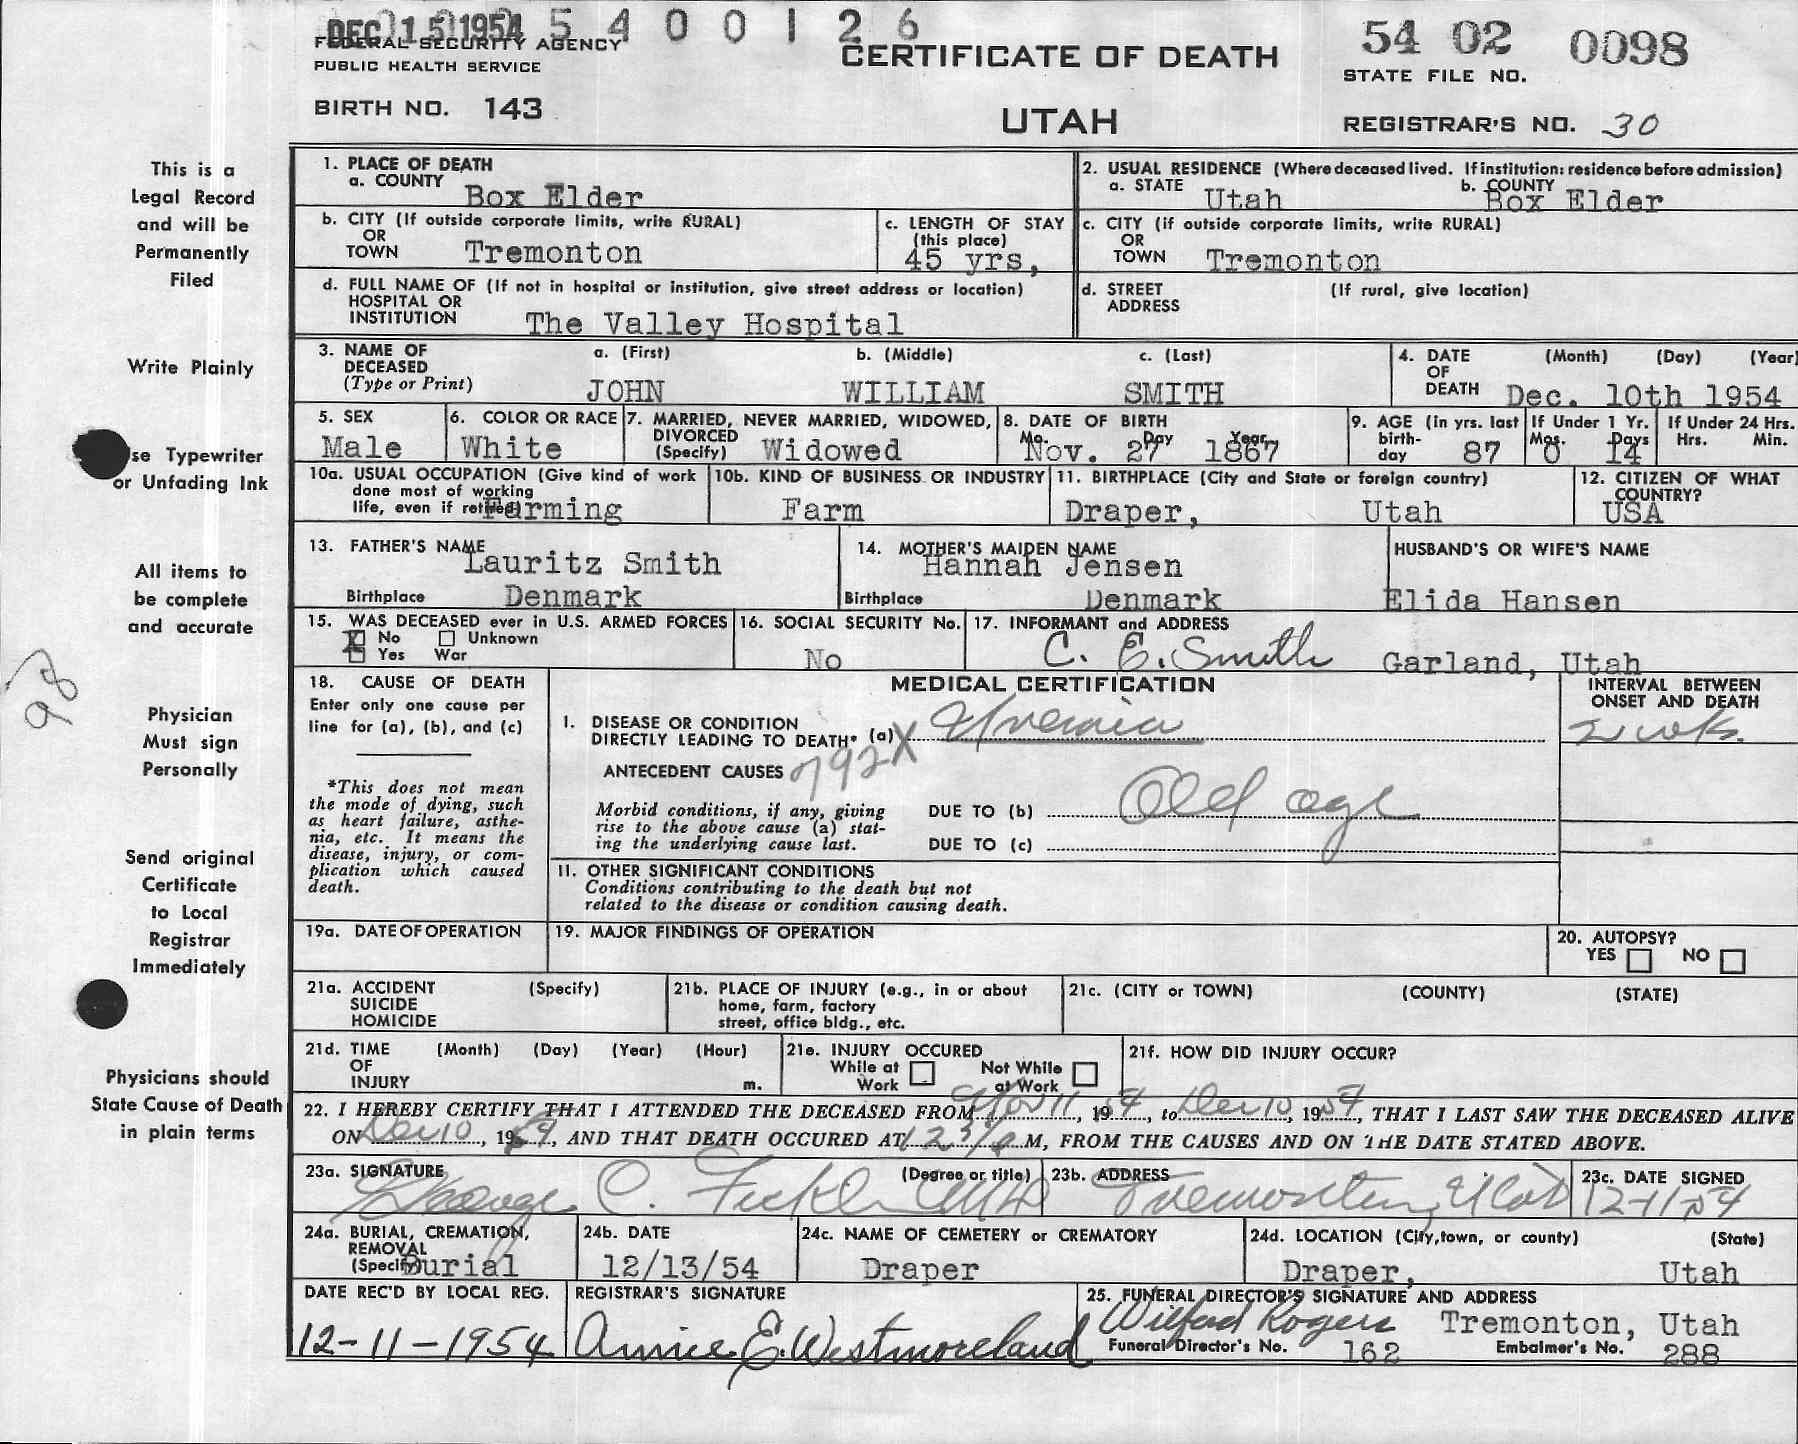 DEC 15 1954 5 4 0 0 1 2 6
54 02 0098
FEDERAL SECURITY AGENCY
PUBLIC HEALTH SERVICE
CERTIFICATE OF DEATH
STATE FILE NO.
BIRTH NO. 143
UTAH
REGISTRAR'S NO. 30
This is a
Legal Record
and will be
Permanently
Filed
Write Plainly
se Typewriter
or Unfading Ink
All items to
be complete
and accurate
98
Physician
Must sign
Personally
Send original
Certificate
to Local
Registrar
Immediately
Physicians should
State Cause of Death
in plain terms
1. PLACE OF DEATH
a. COUNTY Box Elder
2. USUAL RESIDENCE (Where deceased lived. If institution: residence before admission)
a. STATE Utah b. COUNTY Box Elder
b. CITY (If outside corporate limits, write RURAL)
OR
TOWN Tremonton
c. LENGTH OF STAY
(this place)
45 yrs,
c. CITY (if outside corporate limits, write RURAL)
OR
TOWN Tremonton
d. FULL NAME OF (If not in hospital or institution, give street address or location)
HOSPITAL OR
INSTITUTION The Valley Hospital
d. STREET (If rural, give location)
ADDRESS
3. NAME OF a. (First) b. (Middle) c. (Last)
DECEASED
(Type or Print) JOHN WILLIAM SMITH
4. DATE (Month) (Day) (Year)
OF
DEATH Dec. 10th 1954
5. SEX
Male
6. COLOR OR RACE
White
7. MARRIED, NEVER MARRIED, WIDOWED,
DIVORCED
(Specify) Widowed
8. DATE OF BIRTH
Mo. Day Year
Nov. 27 1867
9. AGE (in yrs. last
birth-
day 87
If Under 1 Yr.
Mos. Days
0 14
If Under 24 Hrs.
Hrs. Min.
10a. USUAL OCCUPATION (Give kind of work
done most of working
life, even if retired) Farming
10b. KIND OF BUSINESS OR INDUSTRY
Farm
11. BIRTHPLACE (City and State or foreign country)
Draper, Utah
12. CITIZEN OF WHAT
COUNTRY?
USA
13. FATHER'S NAME
Lauritz Smith
Birthplace Denmark
14. MOTHER'S MAIDEN NAME
Hannah Jensen
Birthplace Denmark
HUSBAND'S OR WIFE'S NAME
Elida Hansen
15. WAS DECEASED ever in U.S. ARMED FORCES
X No Unknown
Yes War
16. SOCIAL SECURITY No.
No
17. INFORMANT and ADDRESS
C. E. Smith Garland, Utah
18. CAUSE OF DEATH
Enter only one cause per
line for (a), (b), and (c)
*This does not mean
the mode of dying, such
as heart failure, asthe-
nia, etc. It means the
disease, injury, or com-
plication which caused
death.
MEDICAL CERTIFICATION
INTERVAL BETWEEN
ONSET AND DEATH
I. DISEASE OR CONDITION
DIRECTLY LEADING TO DEATH* (a) Uremia
2 wks.
ANTECEDENT CAUSES 792X
Morbid conditions, if any, giving
rise to the above cause (a) stat-
ing the underlying cause last.
DUE TO (b) Old age
DUE TO (c)
11. OTHER SIGNIFICANT CONDITIONS
Conditions contributing to the death but not
related to the disease or condition causing death.
19a. DATE OF OPERATION
19. MAJOR FINDINGS OF OPERATION
20. AUTOPSY?
YES NO
21a. ACCIDENT (Specify)
SUICIDE
HOMICIDE
21b. PLACE OF INJURY (e.g., in or about
home, farm, factory
street, office bldg., etc.
21c. (CITY or TOWN) (COUNTY) (STATE)
21d. TIME (Month) (Day) (Year) (Hour)
OF
INJURY m.
21e. INJURY OCCURED
While at Not While
Work at Work
21f. HOW DID INJURY OCCUR?
22. I HEREBY CERTIFY THAT I ATTENDED THE DECEASED FROM Nov 11, 1954, to Dec 10, 1954, THAT I LAST SAW THE DECEASED ALIVE
ON Dec 10, 1954, AND THAT DEATH OCCURED AT M, FROM THE CAUSES AND ON THE DATE STATED ABOVE.
23a. SIGNATURE (Degree or title)
George C. MD
23b. ADDRESS
Tremonton, Utah
23c. DATE SIGNED
12-11-54
24a. BURIAL, CREMATION,
REMOVAL
(Specify) Burial
24b. DATE
12/13/54
24c. NAME OF CEMETERY or CREMATORY
Draper
24d. LOCATION (City, town, or county) (State)
Draper, Utah
DATE REC'D BY LOCAL REG.
12-11-1954
REGISTRAR'S SIGNATURE
Annie E. Westmoreland
25. FUNERAL DIRECTOR'S SIGNATURE AND ADDRESS
Wilford Rogers Tremonton, Utah
Funeral Director's No. 162 Embalmer's No. 288